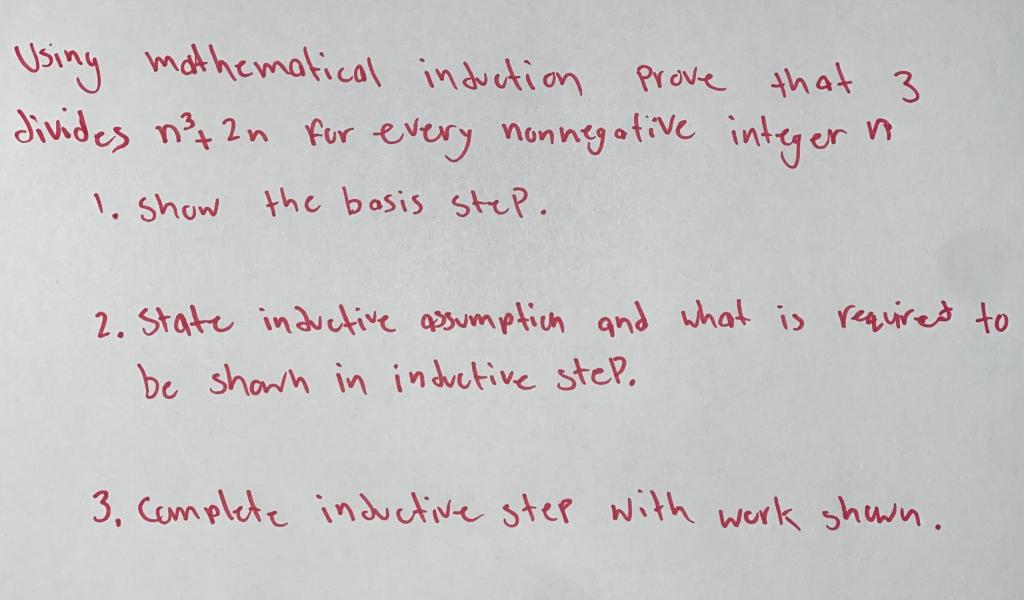 Using mathematical induction prove that 3
divides n³+ 2n for every nonnegative integer n
1. Show the basis step.
2. State inductive assumption and what is required to
be shown in inductive step.
3. Complete inductive step with work shown.